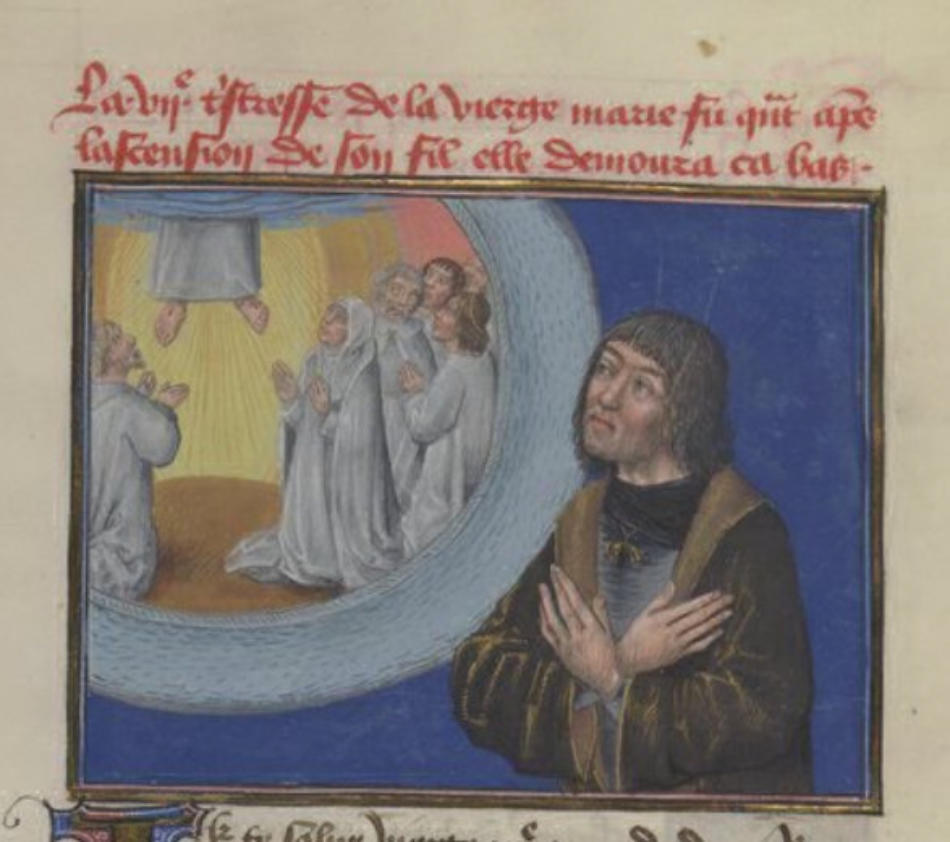 La vij^e t'stresse de la vierge marie fu q̃ñt ap̃s
lascension de son fil elle demoura ca bas.